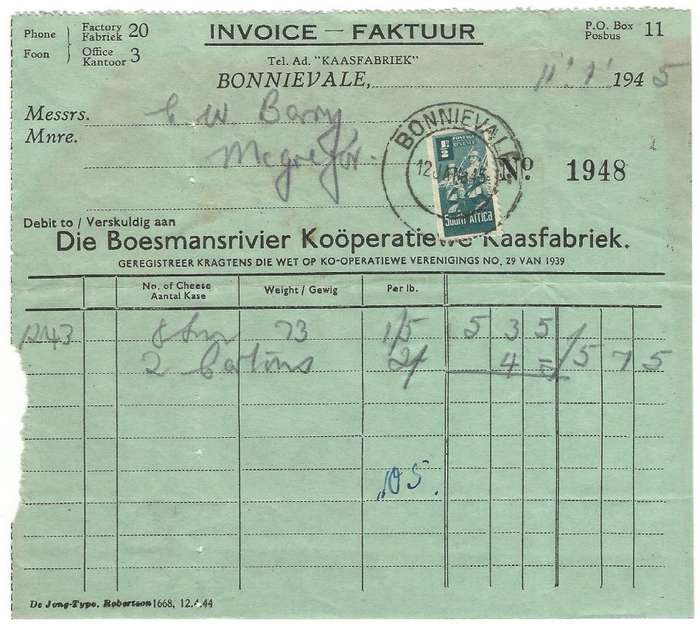 Phone Foon Factory Fabriek 20 Office Kantoor 3
INVOICE — FAKTUUR
P.O. Box Posbus 11
Tel. Ad. "KAASFABRIEK"
BONNIEVALE, 11.1. 1945
Messrs. Mnre. C W Barry
Mcgregor.
BONNIEVALE
POSTAGE REVENUE
South Africa
No 1948
Debit to / Verskuldig aan
Die Boesmansrivier Koöperatiewe Kaasfabriek.
GEREGISTREER KRAGTENS DIE WET OP KO-OPERATIEWE VERENIGINGS NO. 29 VAN 1939
No. of Cheese Aantal Kase Weight / Gewig Per lb.
8 73 1/5 5 3 5
2 Cartons 2/ 4 = 5 7 5
105.
De Jong-Typo, Robertson 1668, 12.4.44